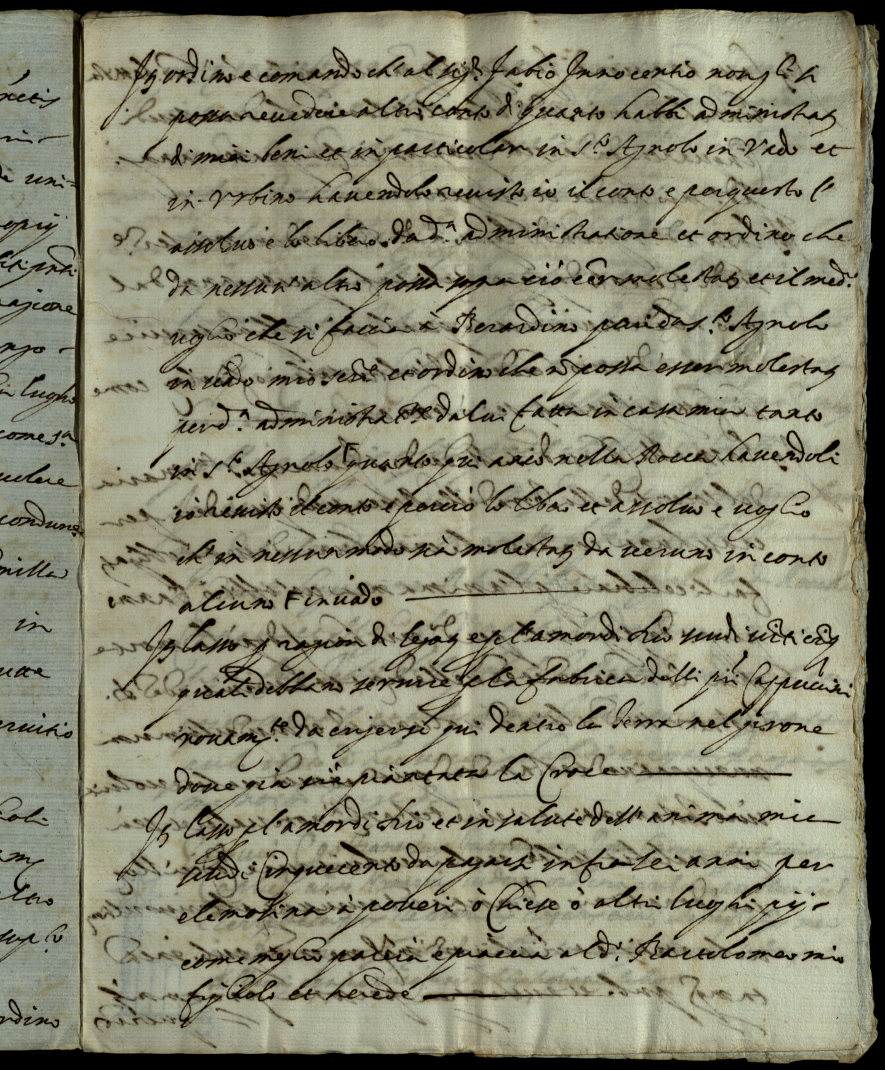 retis
in-
di uni=
opij
ragione
in lugho
come s.ª
volere
condune
milla
in
ervitio
altro
ordino
Itẽ ordino e comando ch' al sig.r Fabio Innocentio non gli si
possa revedere altro conto di quanto habbi administratõ
di miei beni et in particolar in s.to Agnolo in Vado et
in Urbino havendolo revisto io il conto e per questo l'
assoluo e lo libero da d.ª administratione et ordino che
da nessun' altro possa sopra ciò esser molestatõ et il med.º
voglio che si faccia à Berardino da s.to Agnolo
in vado mio ser.re et ordino che nõ possa esser molestatõ
per d.ª administratne da lui fatta in casa mia tanto
in s.to Agnolo quanto qui anco nella Rocca havendoli
io revisto il conto e perciò lo libero et assoluo e voglio
ch' in nessun modo sia molestatõ da veruno in conto
alcuno
Itẽ lasso p ragion di legatõ e p l'amor di Dio scudi
quali debbano servire p la fabrica delli pri Cappuccini
novam.te da erigersi qui dentro la Terra nel girone
dove già si è piantata la Croce
Itẽ lasso p l'amor di Dio et in salute dell' anima mia
scudi Cinquecento da pagarsi infra sei anni per
elemosina à poveri ò Chiese ò altri luoghi pij
come meglio parerà e piacerà al d.º Bartolomeo mio
figliolo et herede